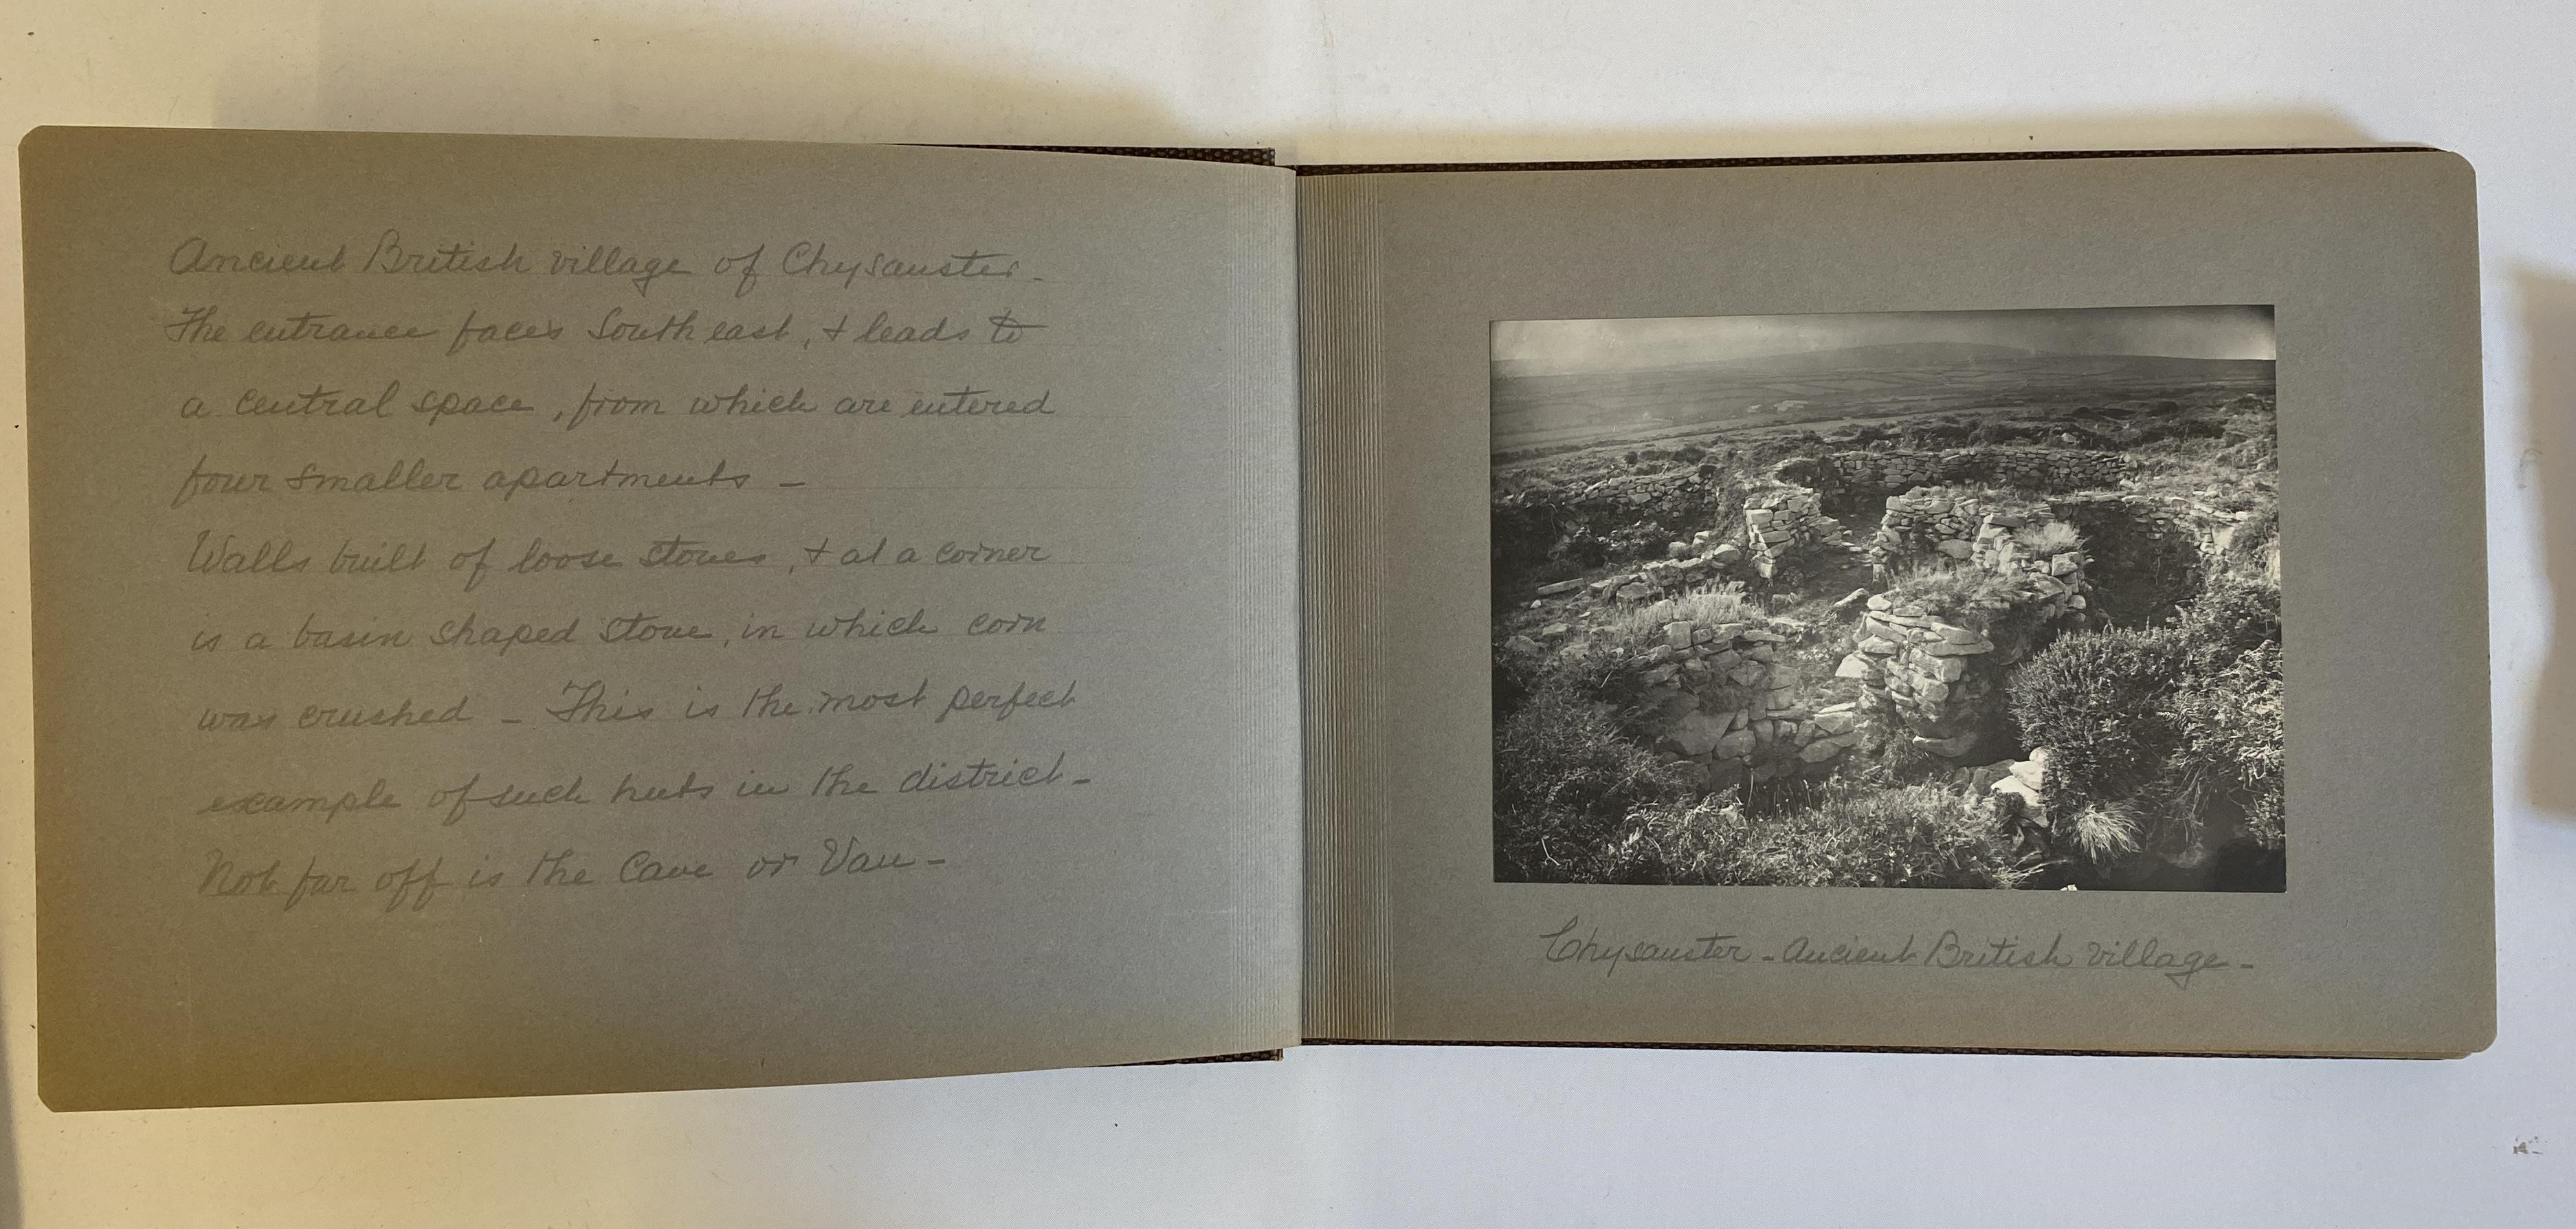 Ancient British village of Chysauster -
The entrance faces South east, & leads to
a central space, from which are entered
four smaller apartments -
Walls built of loose stones, & at a corner
is a basin shaped stone, in which corn
was crushed - This is the most perfect
example of such huts in the district -
Not far off is the Cave or Vau -
Chysauster - Ancient British village -